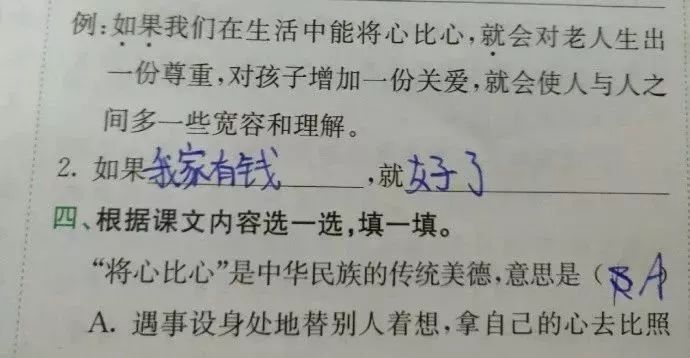 例:如果我们在生活中能将心比心,就会对老人生出
一份尊重,对孩子增加一份关爱,就会使人与人之
间多一些宽容和理解。
2. 如果我家有钱,就好了
四、根据课文内容选一选,填一填。
“将心比心”是中华民族的传统美德,意思是(A)
A. 遇事设身处地替别人着想,拿自己的心去比照